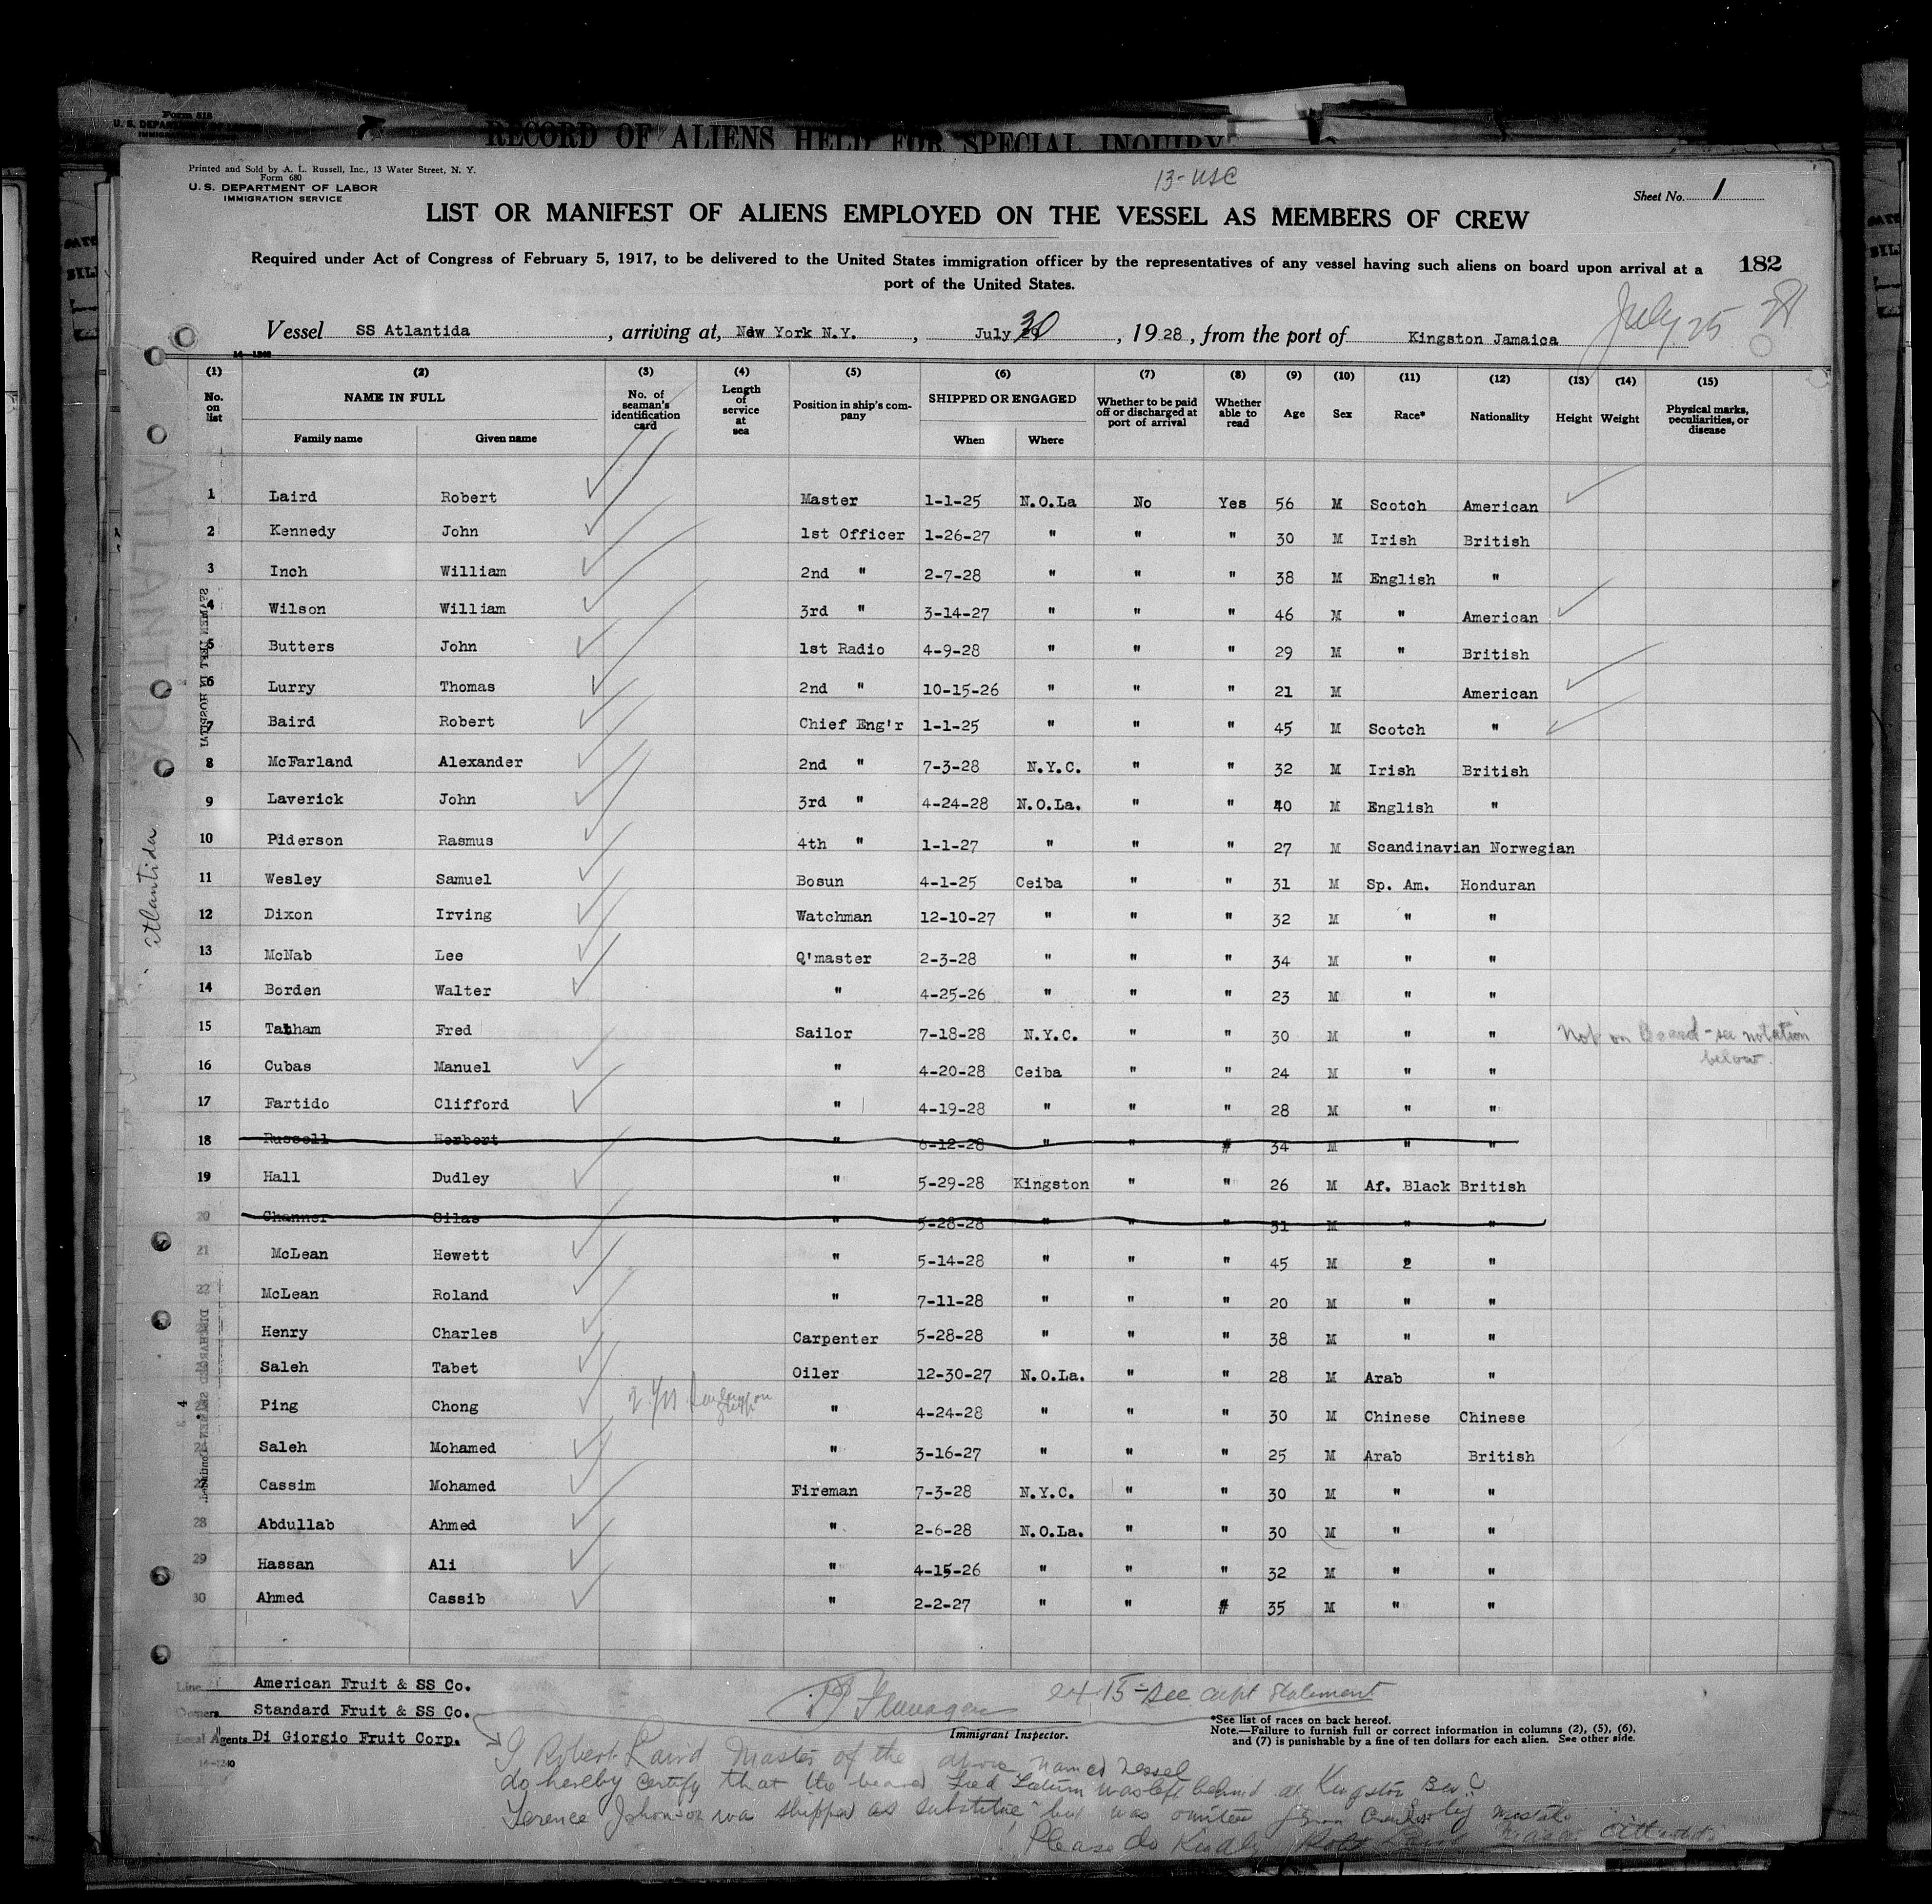 Form 618
U. S. DEPARTMENT OF LABOR
RECORD OF ALIENS HELD FOR SPECIAL INQUIRY
Printed and Sold by A. L. Russell, Inc., 13 Water Street, N. Y.
Form 680
U. S. DEPARTMENT OF LABOR
IMMIGRATION SERVICE
13-USC
Sheet No. 1
LIST OR MANIFEST OF ALIENS EMPLOYED ON THE VESSEL AS MEMBERS OF CREW
Required under Act of Congress of February 5, 1917, to be delivered to the United States immigration officer by the representatives of any vessel having such aliens on board upon arrival at a
port of the United States.
182
July 25
Vessel SS Atlantida, arriving at, New York N.Y., July 30, 1928, from the port of Kingston Jamaica
(1) (2) (3) (4) (5) (6) (7) (8) (9) (10) (11) (12) (13) (14) (15)
No. on list NAME IN FULL Family name Given name No. of seaman's identification card Length of service at sea Position in ship's company SHIPPED OR ENGAGED When Where Whether to be paid off or discharged at port of arrival Whether able to read Age Sex Race* Nationality Height Weight Physical marks, peculiarities, or disease
1 Laird Robert Master 1-1-25 N.O.La No Yes 56 M Scotch American
2 Kennedy John 1st Officer 1-26-27 " " " 30 M Irish British
3 Inch William 2nd " 2-7-28 " " " 38 M English "
4 Wilson William 3rd " 3-14-27 " " " 46 M " American
5 Butters John 1st Radio 4-9-28 " " " 29 M " British
6 Lurry Thomas 2nd " 10-15-26 " " " 21 M American
7 Baird Robert Chief Eng'r 1-1-25 " " " 45 M Scotch "
8 McFarland Alexander 2nd " 7-3-28 N.Y.C. " " 32 M Irish British
9 Laverick John 3rd " 4-24-28 N.O.La. " " 40 M English "
10 Piderson Rasmus 4th " 1-1-27 " " " 27 M Scandinavian Norwegian
11 Wesley Samuel Bosun 4-1-25 Ceiba " " 31 M Sp. Am. Honduran
12 Dixon Irving Watchman 12-10-27 " " " 32 M " "
13 McNab Lee Q'master 2-3-28 " " " 34 M " "
14 Borden Walter " 4-25-26 " " " 23 M " "
15 Tatham Fred Sailor 7-18-28 N.Y.C. " " 30 M " " Not on Board - see notation below.
16 Cubas Manuel " 4-20-28 Ceiba " " 24 M " "
17 Fartido Clifford " 4-19-28 " " " 28 M " "
18 Russell Herbert " 6-12-28 " " # 34 M " "
19 Hall Dudley " 5-29-28 Kingston " " 26 M Af. Black British
20 Channer Silas " 5-28-28 " " " 31 M " "
21 McLean Hewett " 5-14-28 " " " 45 M 2 "
22 McLean Roland " 7-11-28 " " " 20 M " "
Henry Charles Carpenter 5-28-28 " " " 38 M " "
Saleh Tabet Oiler 12-30-27 N.O.La. " " 28 M Arab "
Ping Chong " 4-24-28 " " " 30 M Chinese Chinese
Saleh Mohamed " 3-16-27 " " " 25 M Arab British
Cassim Mohamed Fireman 7-3-28 N.Y.C. " " 30 M " "
28 Abdullab Ahmed " 2-6-28 N.O.La. " " 30 M " "
29 Hassan Ali " 4-15-26 " " " 32 M " "
30 Ahmed Cassib " 2-2-27 " " # 35 M " "
Atlantida
SEAMEN LEFT IN HOSPITAL
4
Line American Fruit & SS Co.
Owners Standard Fruit & SS Co.
Local Agents Di Giorgio Fruit Corp.
Flanagan
Immigrant Inspector.
15 - see capt statement
*See list of races on back hereof.
Note.—Failure to furnish full or correct information in columns (2), (5), (6),
and (7) is punishable by a fine of ten dollars for each alien. See other side.
I Robert Laird Master of the above named vessel
do hereby certify that the Fred Tatum was left behind at Kingston
Terence Johnson was shipped as substitute but was omitted from Crew list by mistake
Please do Kindly Robt Laird